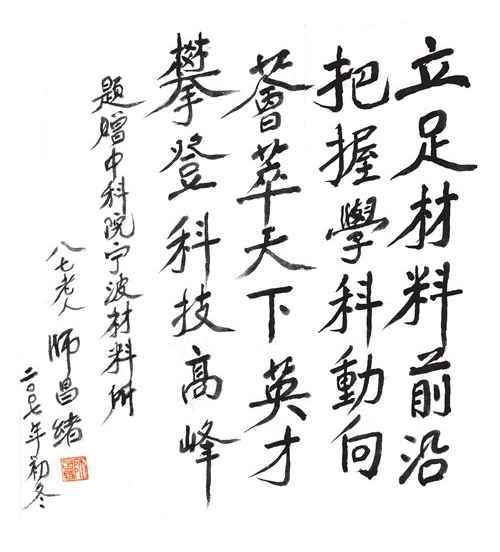 立足材料前沿
把握學科動向
薈萃天下英才
攀登科技高峰
題贈中科院宁波材料所
八七老人 师昌绪
二〇〇七年初冬